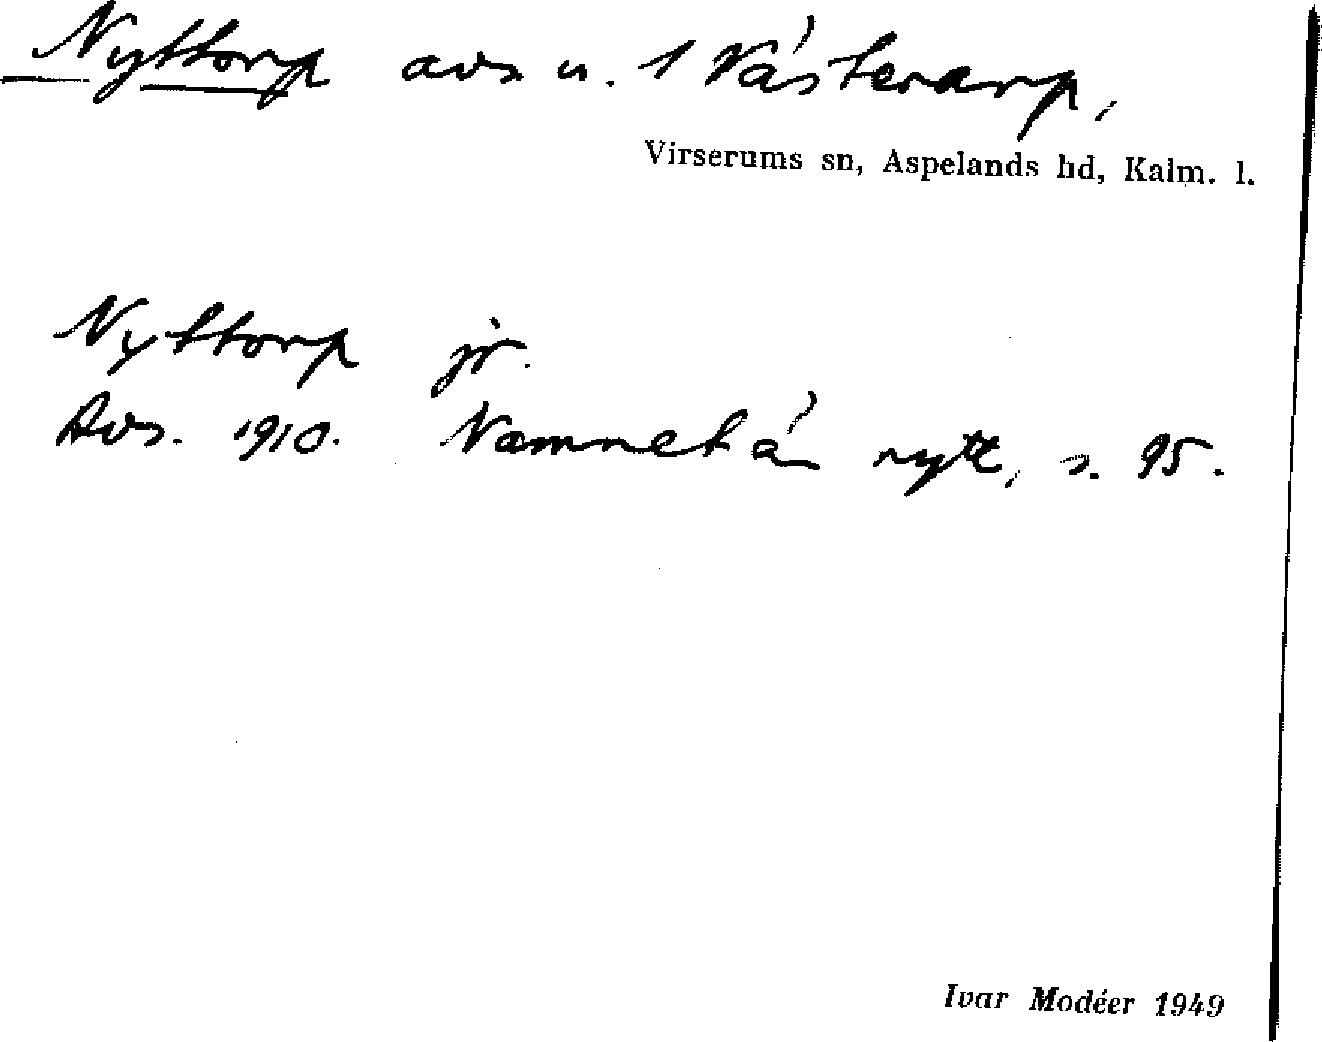 Nyttorp avs u. 1 Västerarp,
Virserums sn, Aspelands hd, Kalm. l.
Nyttorp jr.
Avs. 1910. Namnet är nytt, s. 95.
Ivar Modéer 1949